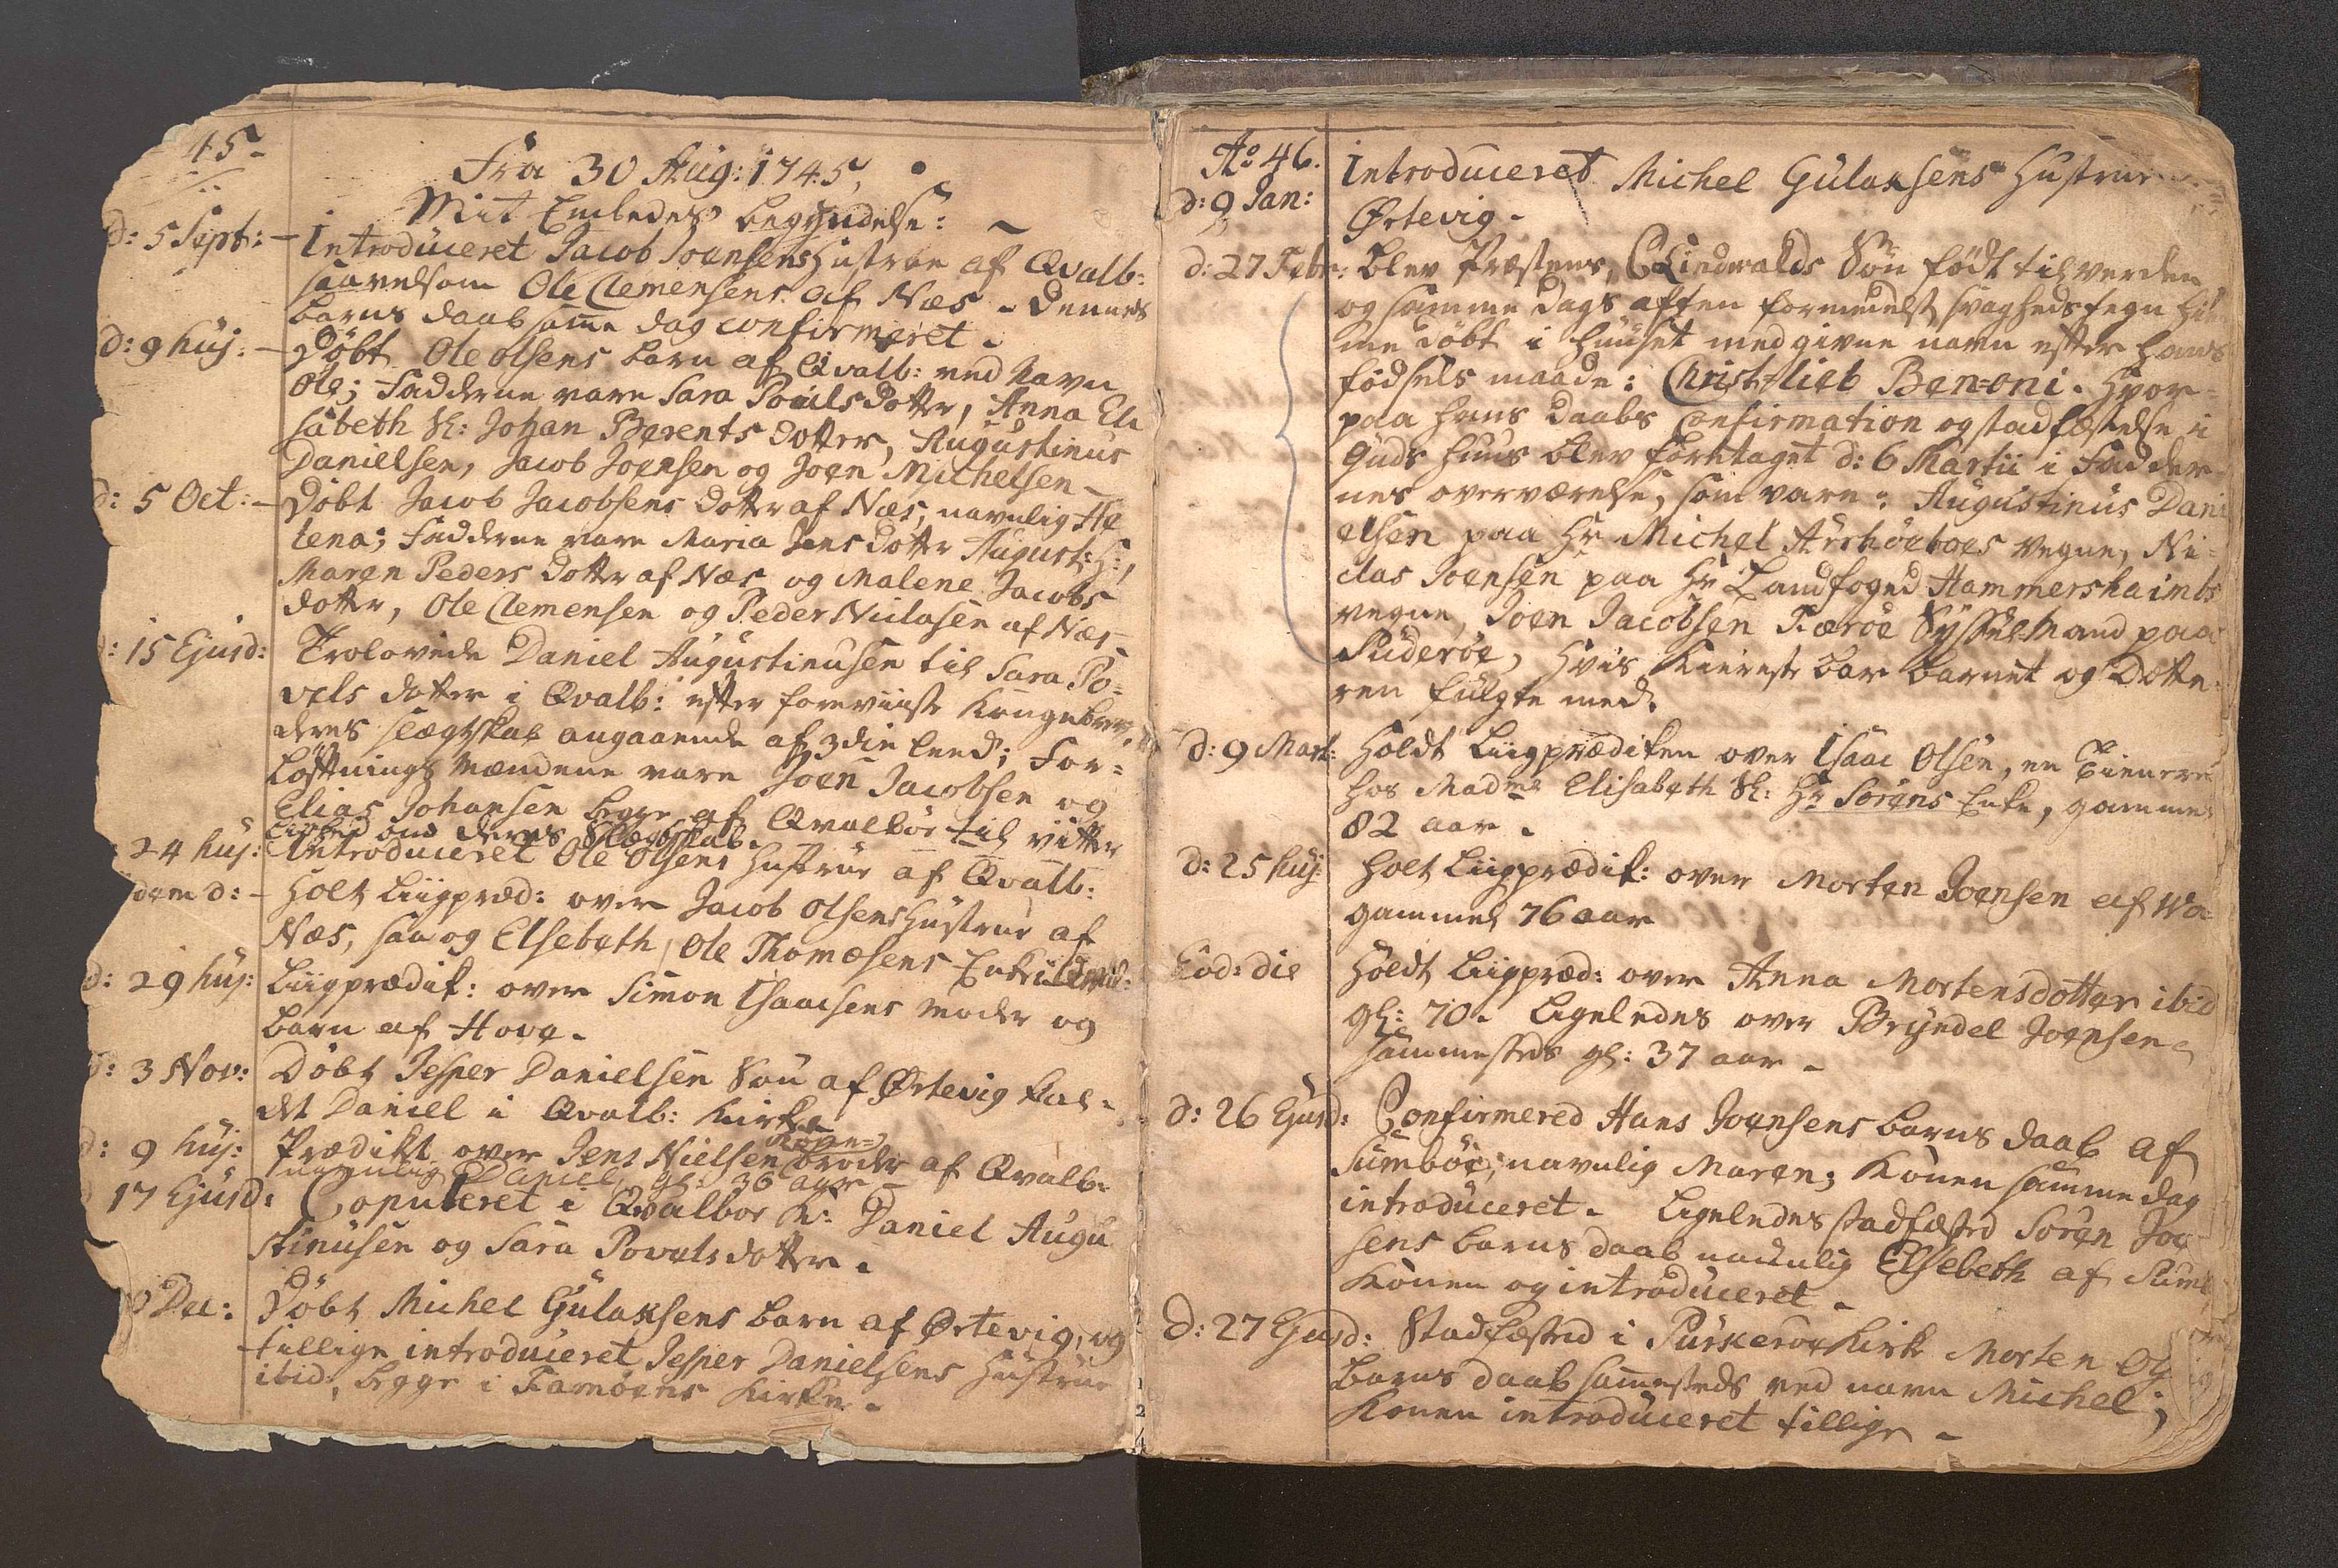 45-
Fra 30 Aug: 1745,
Mit Embedes begyndelse:
d: 5 Sept: - Introduceret Jacob Joensens Hustrue af Qvalb:
saavelsom Ole Clemensens af Næs - Dennes
barns daab samme dag confirmeret -
d: 9 huj: - Døbt Ole Olsens barn af Qvalb: ved Navn
Ole; Fadderne vare Sara Pouls dotter, Anna Eli
sabeth Sl: Johan Berents dotter, Augustinus
Danielsen, Jacob Joensen og Joen Michelsen -
d: 5 Oct: - Døbt Jacob Jacobsens dotter af Næs, navnlig He
lena; Fadderne vare Maria Jens dotter August: H:,
Maren Peders dotter af Næs og Malene Jacobs
dotter, Ole Clemensen og Peder Niclasen af Næs -
d: 15 Ejusd: Trolovede Daniel Augustinusen til Sara Po-
vels dotter i Qvalb: efter foreviiste Kongebrev,
deres slægtskab angaaende af 3die Leed; For-
loftnings Mændene vare Joen Jacobsen og
Elias Johansen begge af Qvalboe til vitter
lighed om deres Slægtskab.
24 huj: Introduceret Ole Olsens Hustrue af Qvalb:
dem d: - Holt Liigpræd: over Jacob Olsens Hustrue af
Næs, saa og Elsebeth, Ole Thomæsens Enke
d: 29 huj: Liigprædik: over Simon Isaacsens Moder og
barn af Hove -
d: 3 Nov: Døbt Jesper Danielsen Søn af Ørtevig kal-
det Daniel i Qvalb: Kirke
d: 9 huj: Prædikt over Jens Nielsen broder af Qvalb:
navnlig Daniel, gl: 36 aar -
17 Ejusd: Copuleret i Qvalboe K: Daniel Augu
stinusen og Sara Povels dotter -
Dec: Døbt Michel Gulaksens barn af Ørtevig, og
tillige introduceret Jesper Danielsens Hustrue
ibid, begge i Famøens Kirke -
Ao 46.
d: 9 Jan: Introduceret Michel Gulaksens Hustrue
Ørtevig -
d: 27 Febr: blev Præstens, C Lindwalds Søn født til verden
og samme dags aften formedelst svagheds tegn hie
me døbt i huuset med givne navn efter hans
fødsels maade: Christ-lieb Ben=oni. Hvor-
paa hans daabs Confirmation og stadfæstelse i
Guds huus blev foretaget d: 6 Martii i Fadder
nes overværelse, som vare: Augustinus Dani
elsen paa Hr Michel Aarhøeboes vegne, Ni-
clas Joensen paa Hr Landfoged Hammershaimbs
vegne, Joen Jacobsen Færøe Syssel-Mand paa
Suderøe, hvis Kiereste bar barnet og Dotte-
ren fulgte med.
d: 9 Mart: Holdt Liigprædiken over Isaac Olsen, en tienere
hos Madme Elisabeth Sl: Hr Sørens Enke, gammel
82 aar -
d: 25 huj: holt Liigprædik: over Morten Joensen af Wa-
gammel 76 aar
Eod: die Holdt Liigpræd: over Anna Mortensdotter ibid
gl: 70 - Ligeledes over Bryndel Joensen
sammesteds gl: 37 aar -
d: 26 Ejusd: Confirmered Hans Joensens barns daab af
Sumbøe, navnlig Maren; Konen samme dag
introduceret - Ligeledes stadfæsted Søren Joe
sens barns daab navnlig Elsebeth af Sumb
Konen og introduceret -
d: 27 Ejusd: Stadfæsted i Purkerøe Kirke Morten Ol
barns daab sammesteds ved navn Michel;
Konen introduceret tillige -